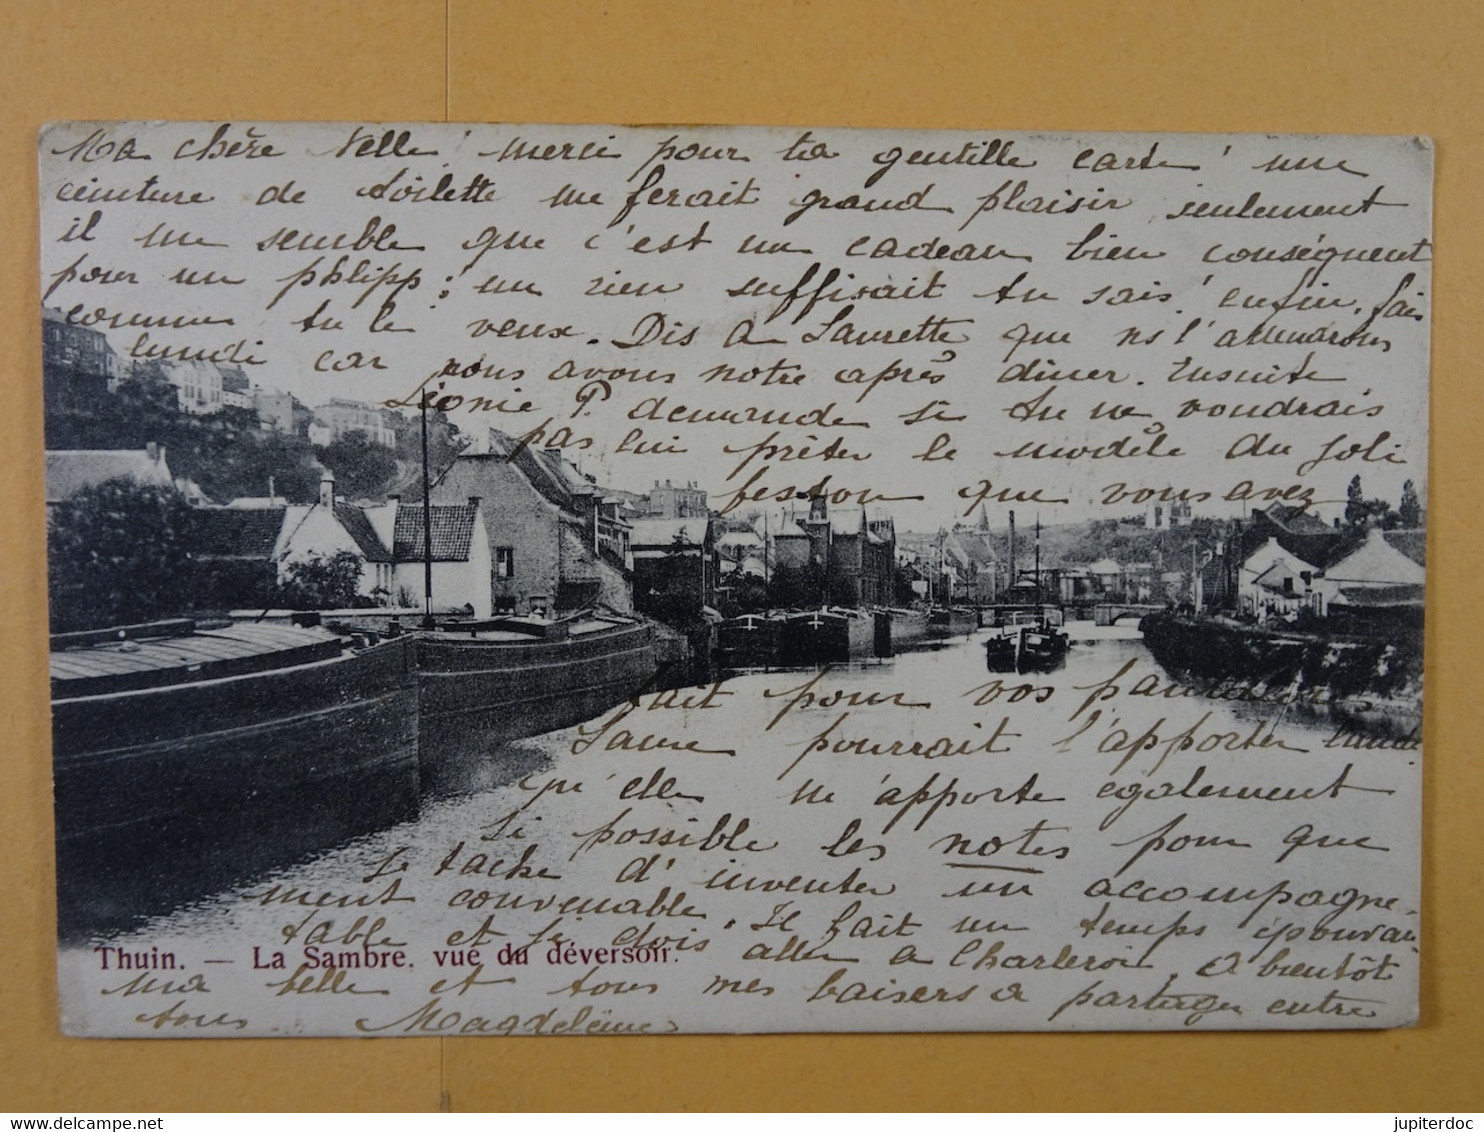 Ma chère Nelle, merci pour ta gentille carte, une
ceinture de toilette me ferait grand plaisir seulement
il me semble que c'est un cadeau bien conséquent
pour un phlipp; un rien suffirait tu sais, enfin, fais
comme tu le veux. Dis à Laurette que ns l'attendrons
lundi car nous avons notre après diner. Ensuite
Léonie P. demande si tu ne voudrais
pas lui prêter le modèle du joli
feston que vous avez
fait pour vos
Laure pourrait l'apporter lundi
qu'elle m'apporte également
si possible les notes pour que
je tache d'inventer un accompagne-
ment convenable. Il fait un temps épouvan
table et je dois aller à Charleroi, à bientôt
ma belle et tous mes baisers à partager entre
tous. Magdeleine
Thuin. — La Sambre, vue du déversoir.
jupiterdoc